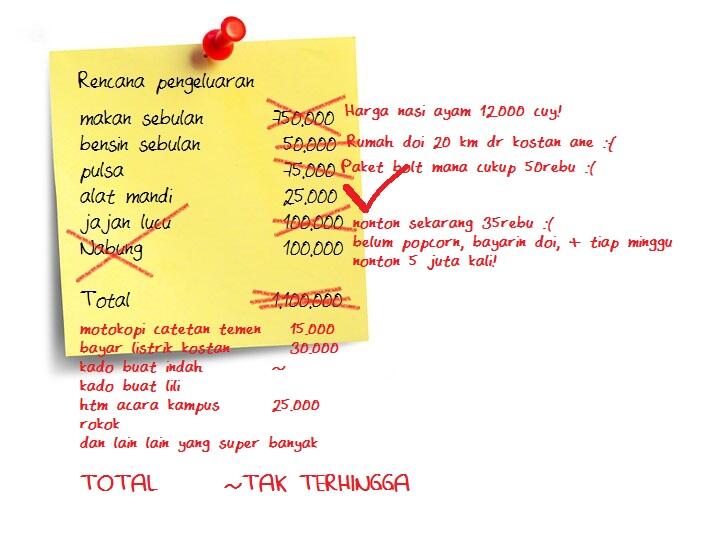 Rencana pengeluaran
makan sebulan 750.000 Harga nasi ayam 12000 cuy!
bensin sebulan 50.000 Rumah doi 20 km dr kostan ane :(
pulsa 75.000 Paket bolt mana cukup 50rebu :(
alat mandi 25.000
jajan lucu 100.000 nonton sekarang 35rebu :(
Nabung 100,000 belum popcorn, bayarin doi, + tiap minggu
nonton 5 juta kali!
Total 1.100.000
motokopi catetan temen 15.000
bayar listrik kostan 30.000
kado buat indah ~
kado buat lili
htm acara kampus 25.000
rokok
dan lain lain yang super banyak
TOTAL ~TAK TERHINGGA